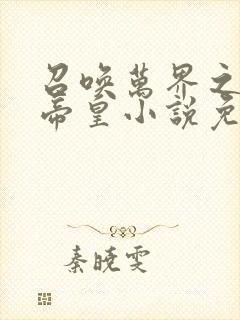 召喚萬界之
帝皇小說免
秦曉雯